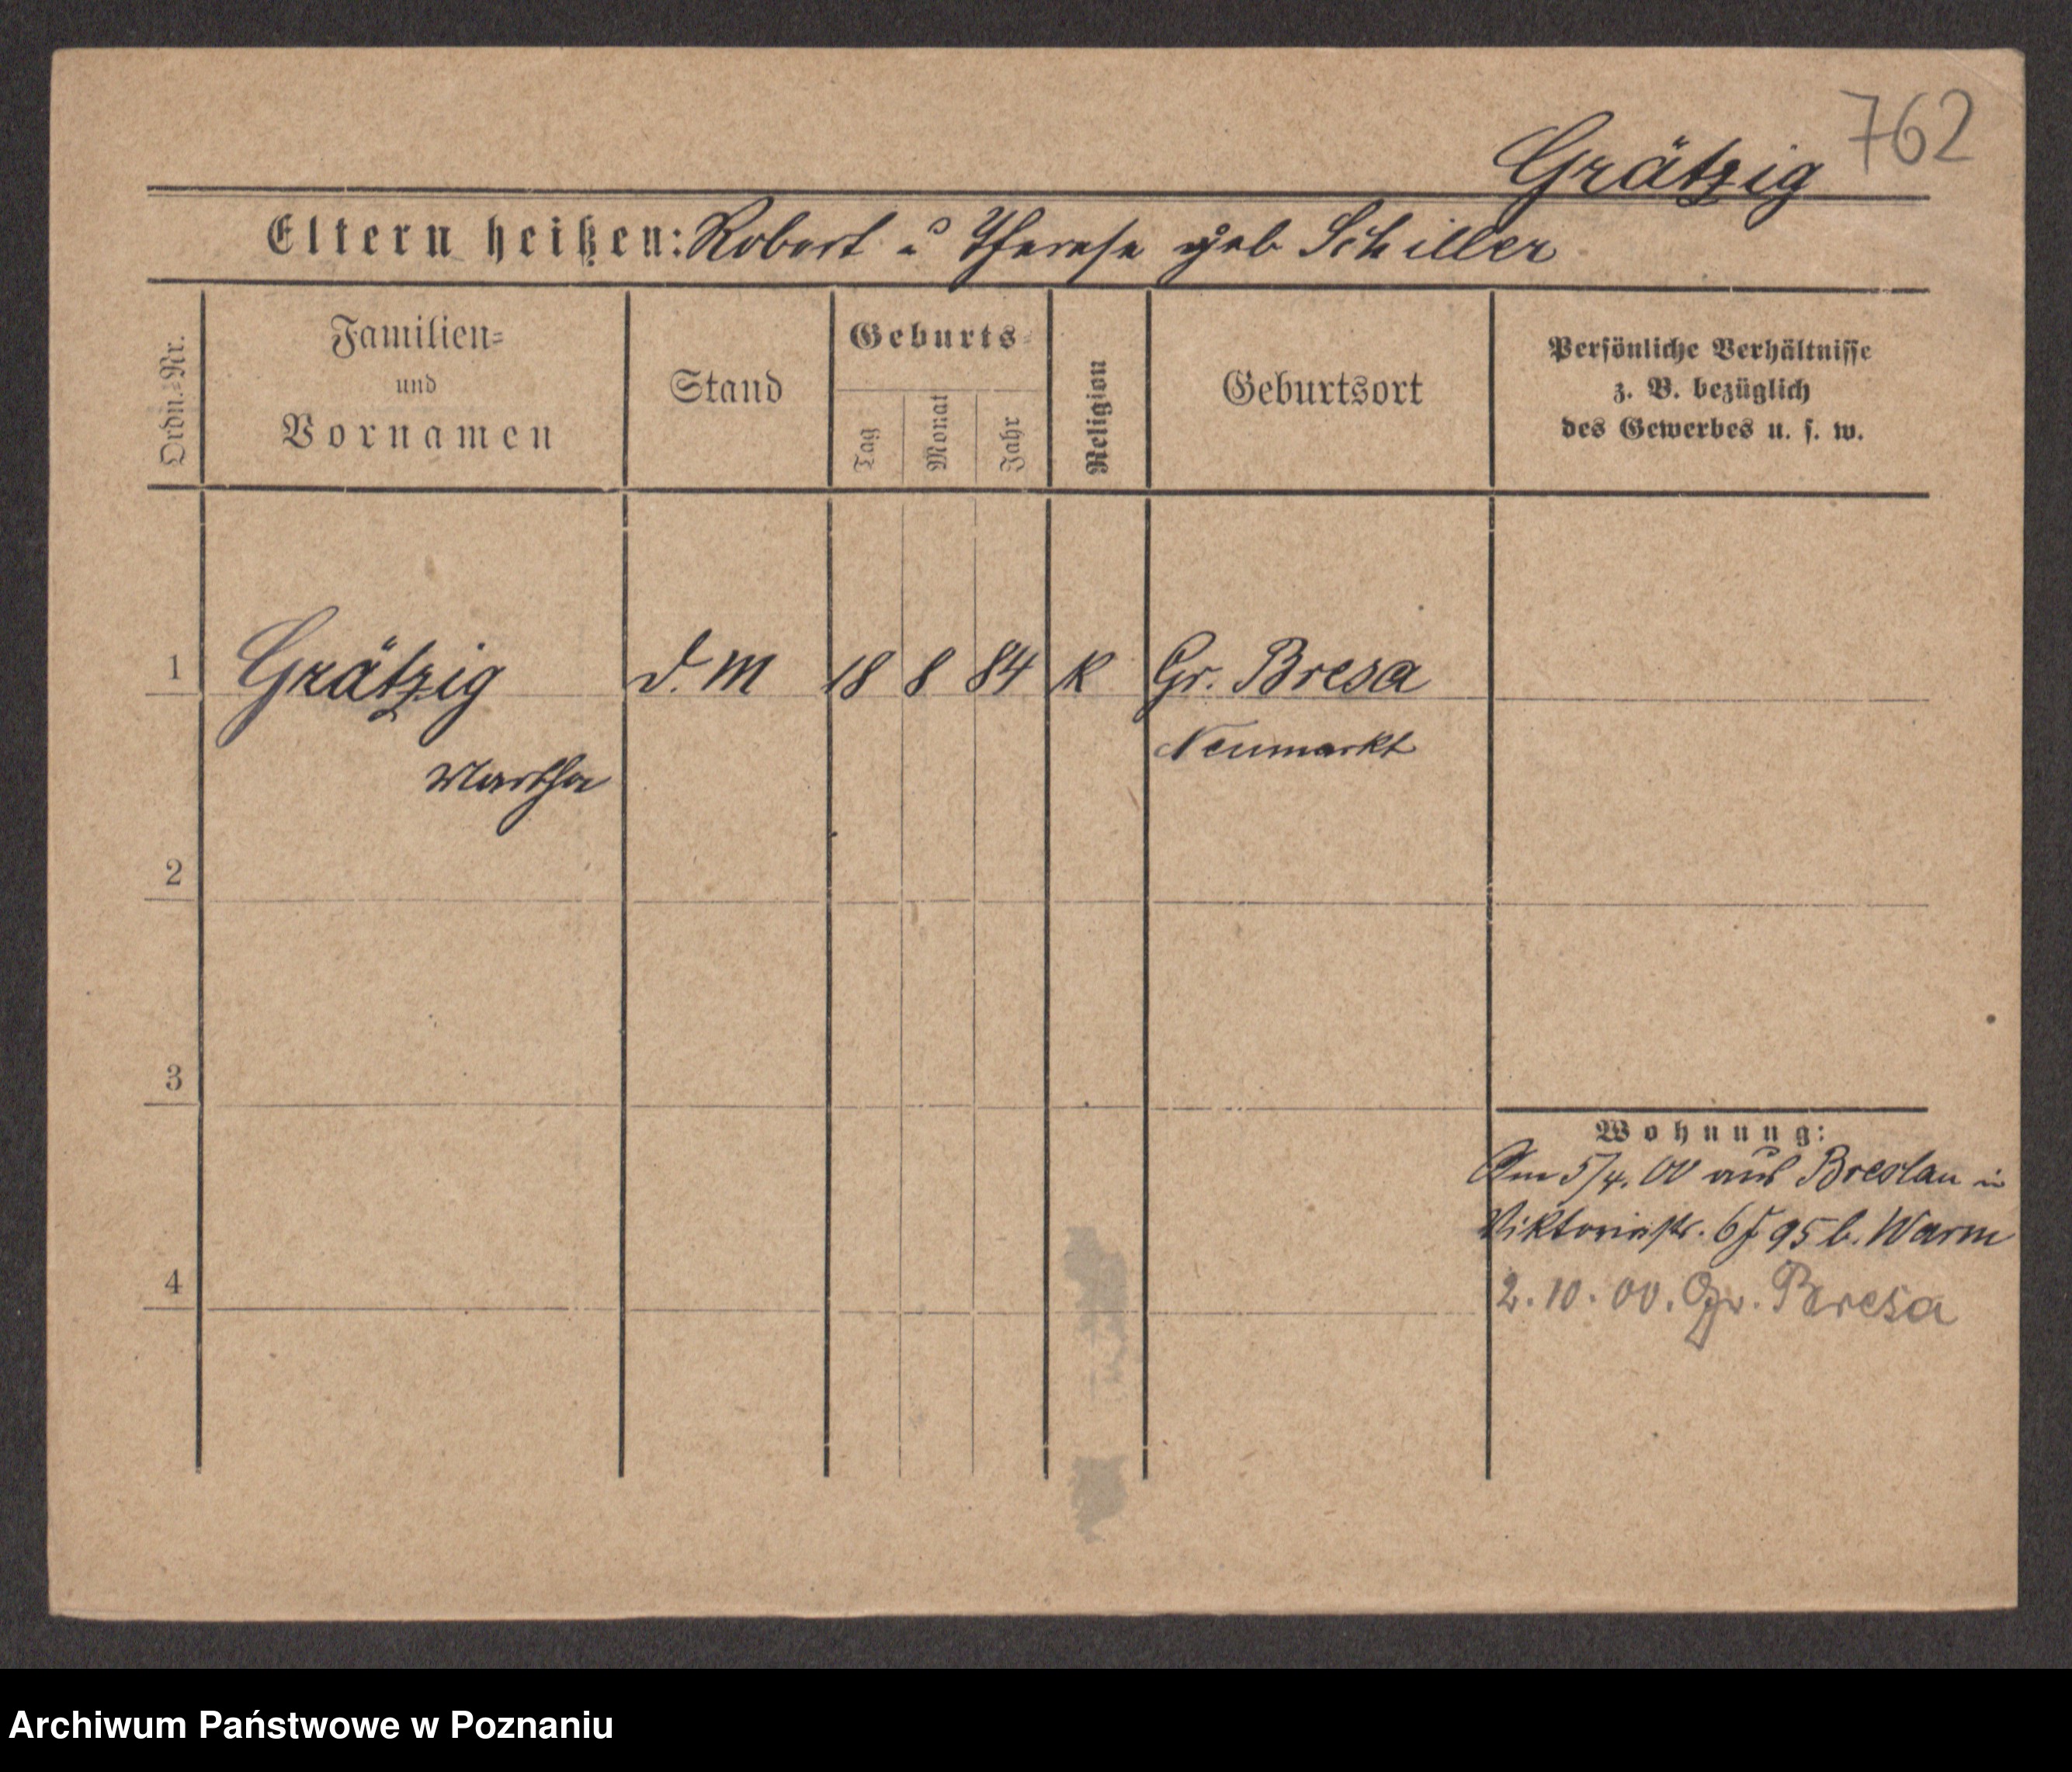 762
Grätzig
Eltern heißen: Robert u Therese geb Schiller
Ordn.=Nr.
Familien=
und
Vornamen
Stand
Geburts=
Tag
Monat
Jahr
Religion
Geburtsort
Persönliche Verhältnisse
z. B. bezüglich
des Gewerbes u. s. w.
1 Grätzig d. M 18 8 84 k Gr. Bresa
Neumarkt
Martha
2
3
Wohnung:
Am 5/4. 00 aus Breslau in
Viktoriastr. 95 b. Warm
4
2.10.00. Gr. Bresa
Archiwum Państwowe w Poznaniu